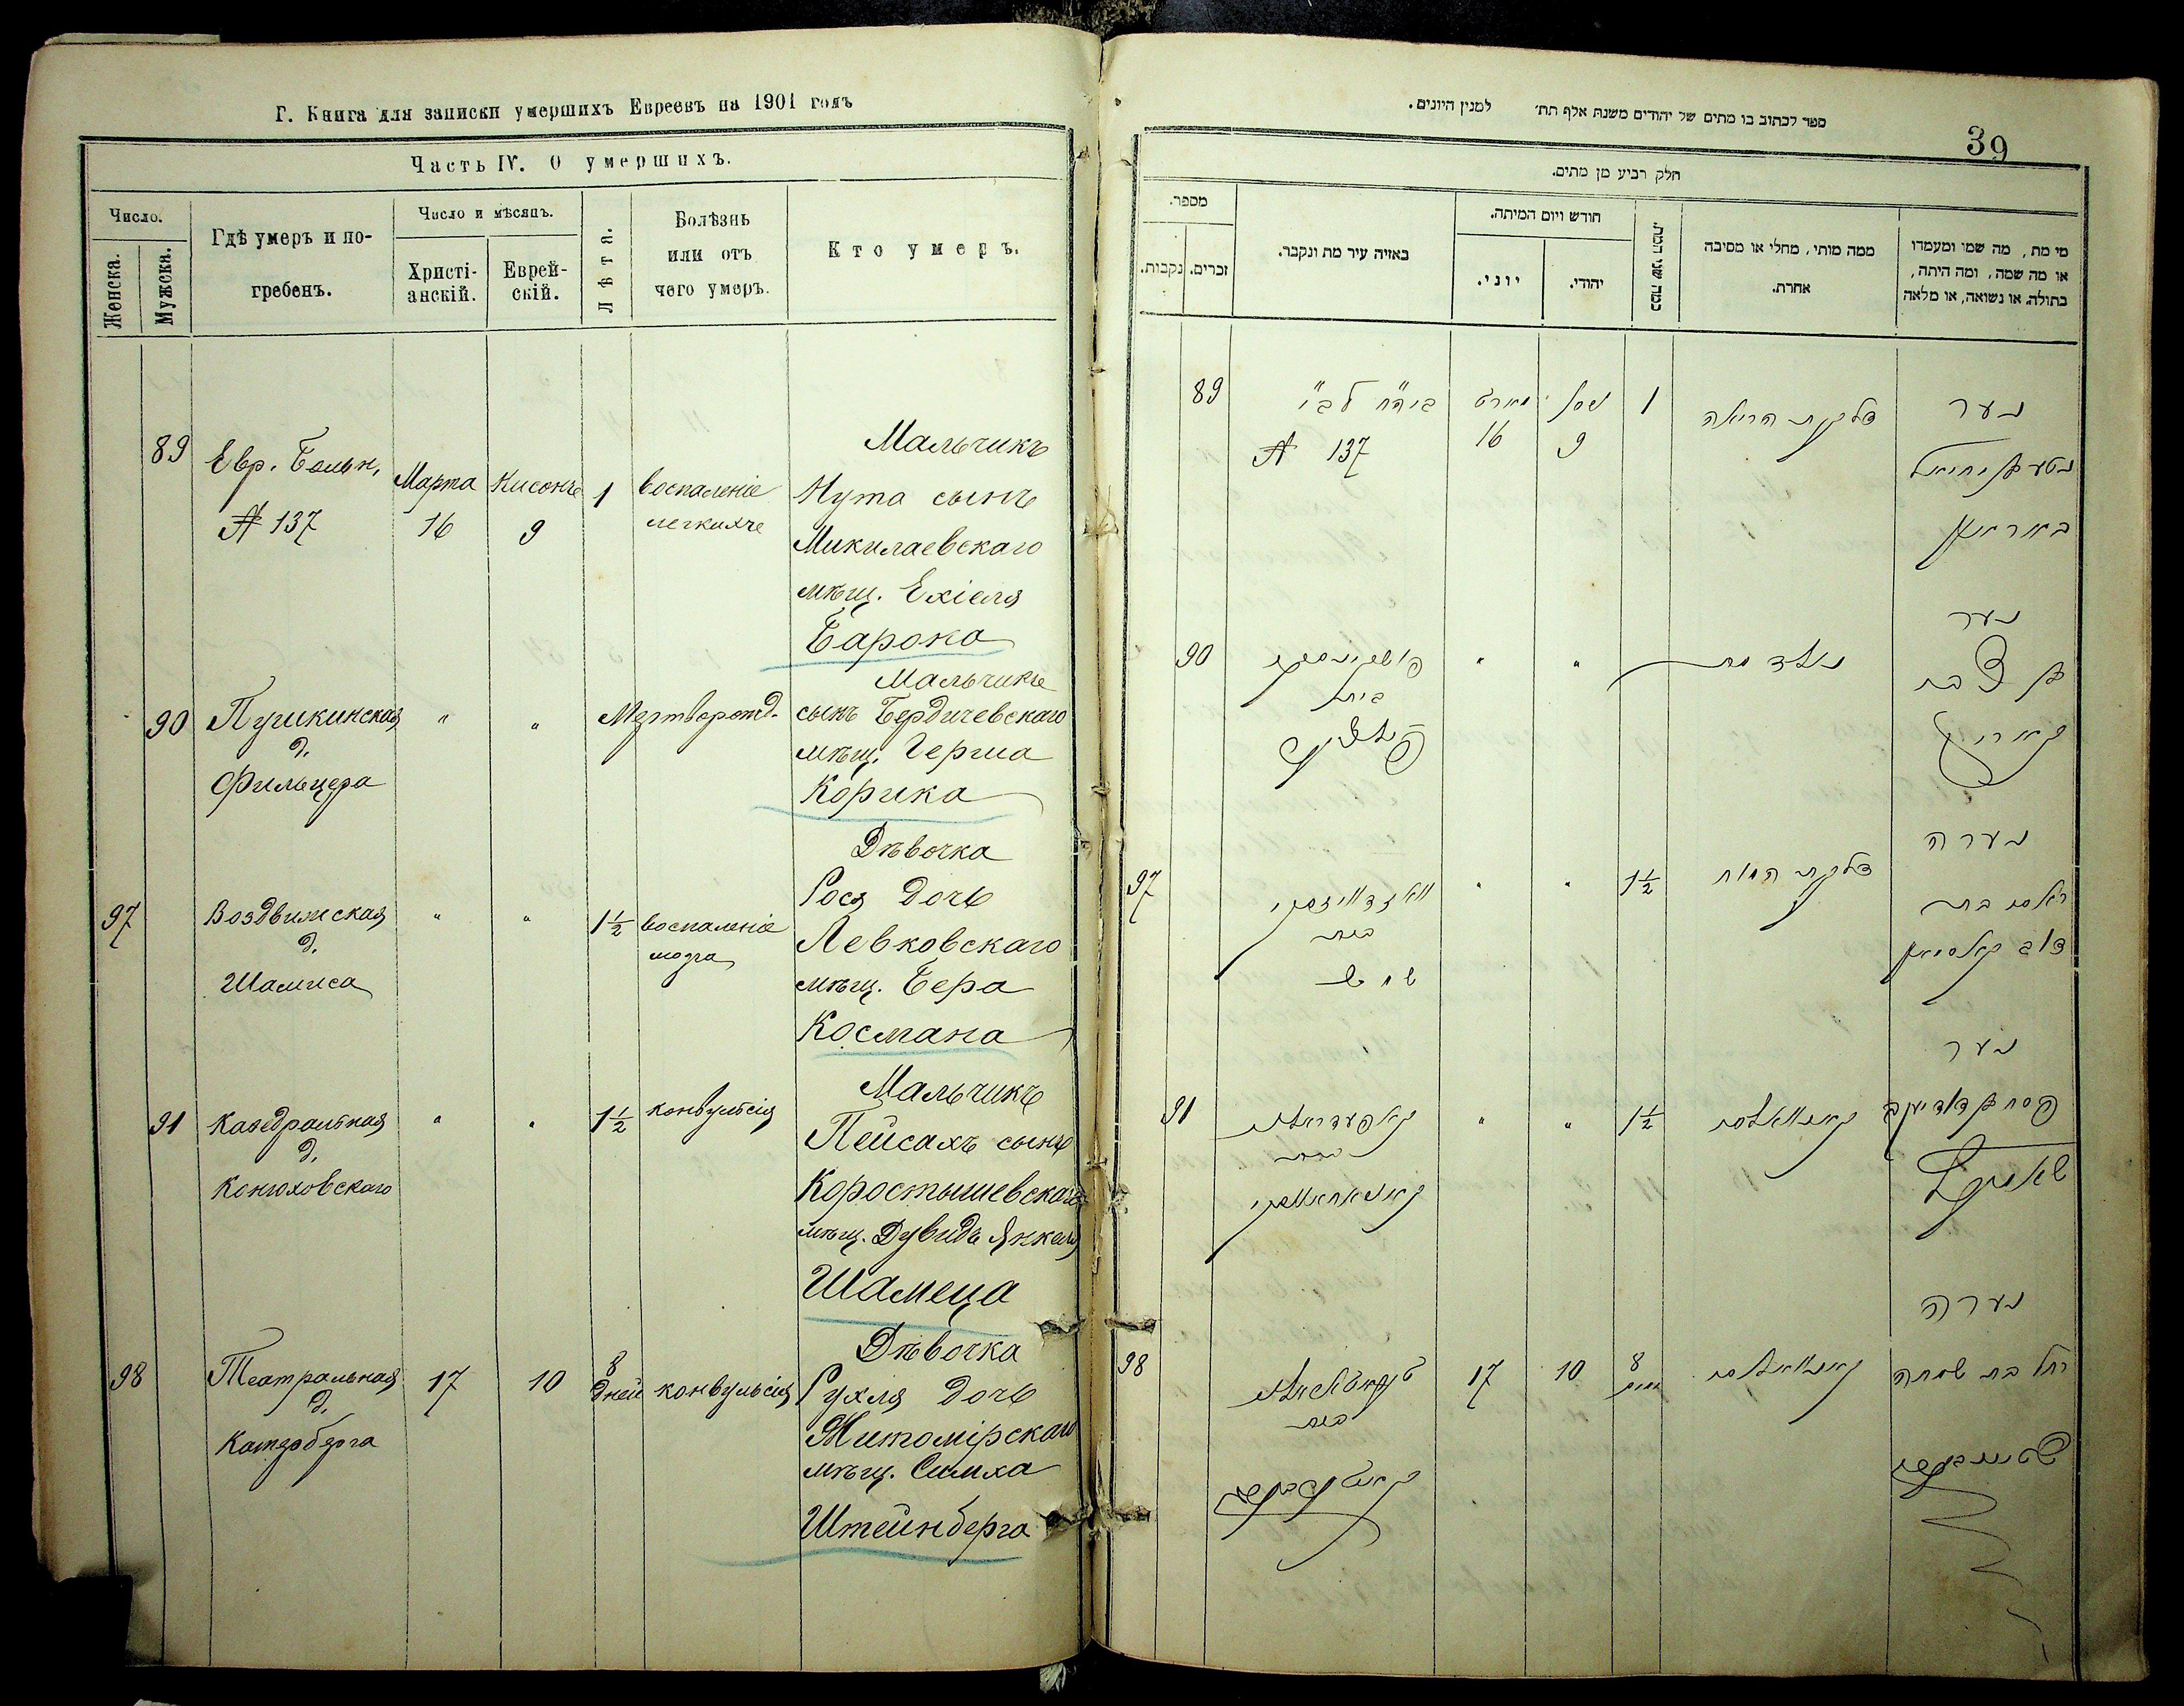 Г. Книга для записки умершихъ Евреевъ на 1901 годъ
Часть IV. О умершихъ.
Число.
Женска.
Мужска.
Гдѣ умеръ и по-
гребенъ.
Число и мѣсяцъ.
Христі-
анскій.
Еврей-
скій.
Лѣта.
Болѣзнь
или отъ
чего умеръ.
Кто умеръ.
89
Евр. Больн,
№ 137
Марта
16
Нисонъ
9
1
воспаленіе
легкихъ
Мальчикъ
Нута сынъ
Миколаевскаго
мѣщ. Ехіеля
Барона
90
Пушкинская
д.
Фильцера
"
"
Мертворожд.
Мальчикъ
сынъ Бердичевскаго
мѣщ. Герша
Корика
97
Воздвиженская
д.
Шамиса
"
"
1½
воспаленіе
мозга
Дѣвочка
Рося дочь
Левковскаго
мѣщ. Бера
Космана
91
Кафедральная
д.
Конюховскаго
"
"
1½
конвульсія
Мальчикъ
Пейсахъ сынъ
Коростышевскаго
мѣщ. Дувидъ Янкеля
Шамеца
98
Театральная
д.
Катерберга
17
10
8
дней
конвульсія
Дѣвочка
Рухля дочь
Житомірскаго
мѣщ. Симха
Штейнберга
ספר לכתוב בו מתים של יהודים משנת אלף תת׳ למנין היונים.
39
חלק רביע מן מתים.
מספר.
נקבות.
זכרים.
באיזה עיר מת ונקבר.
חודש ויום המיתה.
יוני.
יהודי.
כמה שני המת.
ממה מותי, מחלי או מסיבה
אחרת.
מי מת, מה שמו ומעמדו
או מה שמה, ומה היתה,
בתולה, או נשואה, או מלאה
89
№ 137
מארט
16
ניסן
9
1
דלקת הריאה
נער
נטע בן יחיאל
באראן
90
"
"
נולד מת
נער
בן צבי
קאריק
97
בית
"
"
1½
דלקת המוח
נערה
ראסי בת
דוב קאסמאן
91
בית
"
"
1½
נער
פסח בן דוד יעקב
98
בית
17
10
8
ימים
נערה
רחל בת שמחה
שטיינבערג